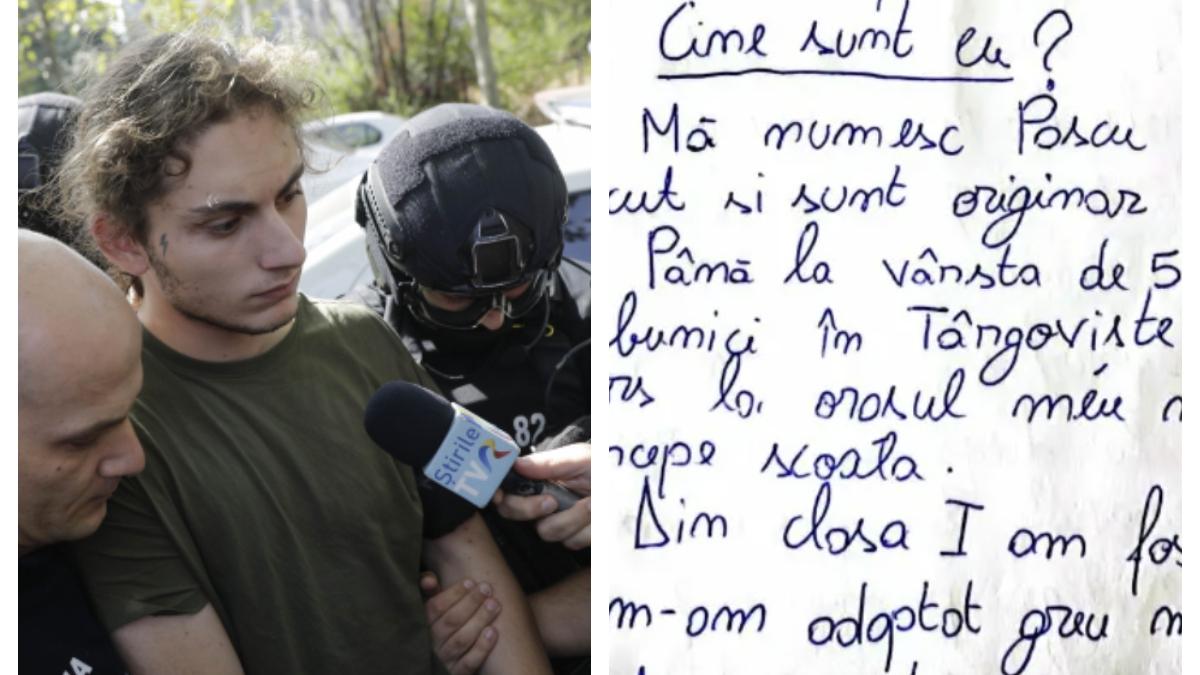 82
Știrile
TVR
Cine sunt eu?
Mă numesc Pascu
cut si sunt originar
Până la vârsta de 5
bunici în Târgoviste
rs la orasul meu
cepe scoala.
Din clasa I am fos
m-am adaptat greu